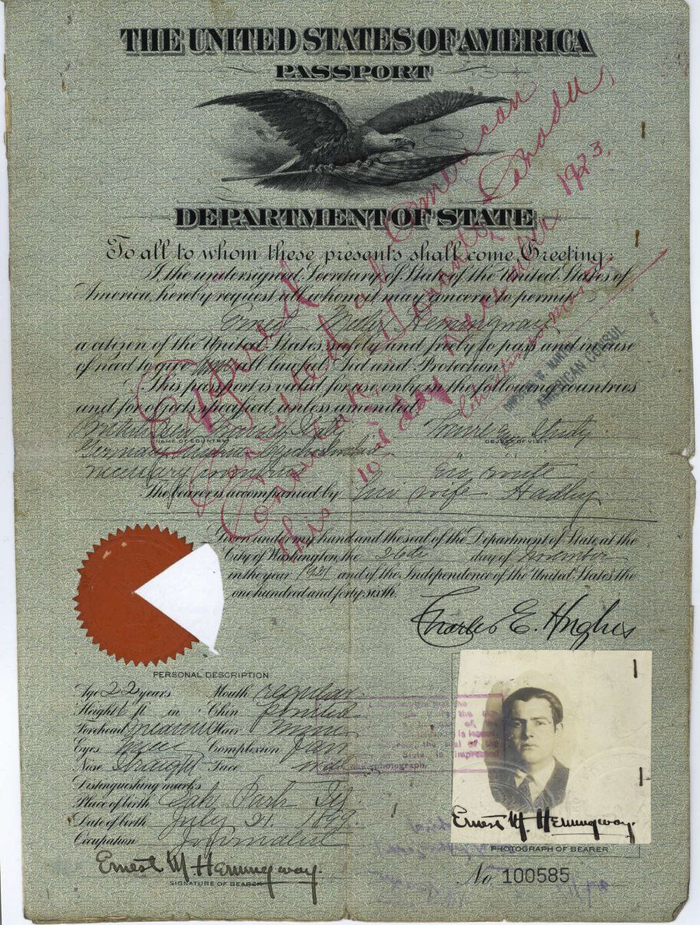 THE UNITED STATES OF AMERICA
PASSPORT
DEPARTMENT OF STATE
To all to whom these presents shall come, Greeting:
I the undersigned, Secretary of State of the United States of
America, hereby request all whom it may concern to permit
Ernest Miller Hemingway
a citizen of the United States, safely and freely to pass and in case
of need to give him all lawful Aid and Protection.
This passport is valid for use only in the following countries
and for objects specified, unless amended
Switzerland France Italy Travel & Study
NAME OF COUNTRY OBJECT OF VISIT
Germany
necessary countries En route
The bearer is accompanied by his wife Hadley
Given under my hand and the seal of the Department of State at the
City of Washington, the 26th day of November
in the year 1921 and of the Independence of the United States the
one hundred and forty sixth.
Charles E. Hughes
Expired
American
Consulate Toronto, Canada,
this 10th day
1923.
AMERICAN CONSUL
PERSONAL DESCRIPTION
Age 22 years Mouth regular
Height 6 ft in Chin
Forehead Hair
Eyes Complexion
Nose Straight Face
Distinguishing marks
Place of birth Oak Park Ill
Date of birth July 21, 1899
Occupation Journalist
Ernest M Hemingway.
SIGNATURE OF BEARER
photograph.
Ernest M. Hemingway.
PHOTOGRAPH OF BEARER
No 100585